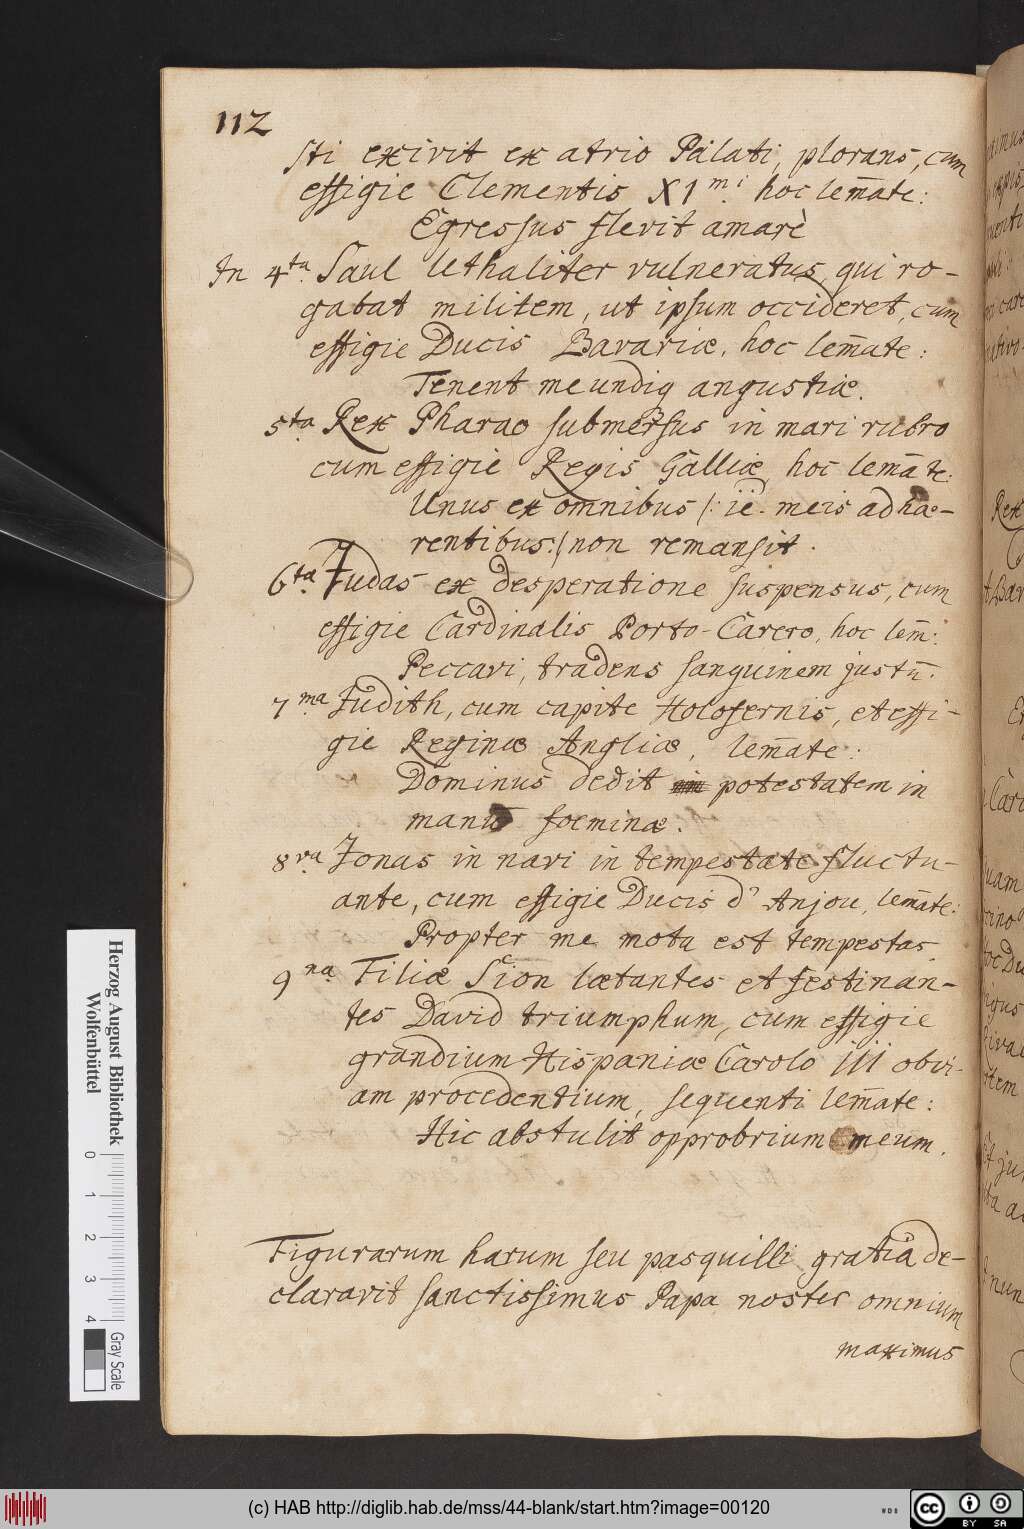 112
sti exivit ex atrio Palati, plorans, cum
effigie Clementis XI mi. hoc lem̄ate:
Egressus flevit amarè
In 4ta. Saul lethaliter vulneratus, qui ro-
gabat militem, ut ipsum occideret, cum
effigie Ducis Bavariæ, hoc lem̄ate:
Tenent me undiq angustiæ.
5ta. Rex Pharao submersus in mari rubro
cum effigie Regis Galliæ, hoc lem̄ate:
Unus ex omnibus /: iē. meis adhæ-
rentibus:/ non remansit.
6ta. Judas ex desperatione suspensus, cum
effigie Cardinalis Porto-Carero, hoc lem̄:
Peccavi, tradens sanguinem justū.
7ma. Judith, cum capite Holofernis, et effi-
gie Reginæ Angliæ, lem̄ate:
Dominus dedit potestatem in
manū foeminæ.
8va. Jonas in navi in tempestate fluctu-
ante, cum effigie Ducis d' Anjou, lem̄ate:
Propter me mota est tempestas
9na. Filiæ Sion lætantes et festinan-
tes David triumphum, cum effigie
grandium Hispaniæ Carolo III obvi-
am procedentium, sequenti lem̄ate:
Hic abstulit opprobrium meum.
Figurarum harum seu pasquilli gratiâ de-
claravit sanctissimus Papa noster omnium
maximus
Herzog August Bibliothek
Wolfenbüttel
0 1 2 3 4
Gray Scale
(c) HAB http://diglib.hab.de/mss/44-blank/start.htm?image=00120
WDB
cc BY SA